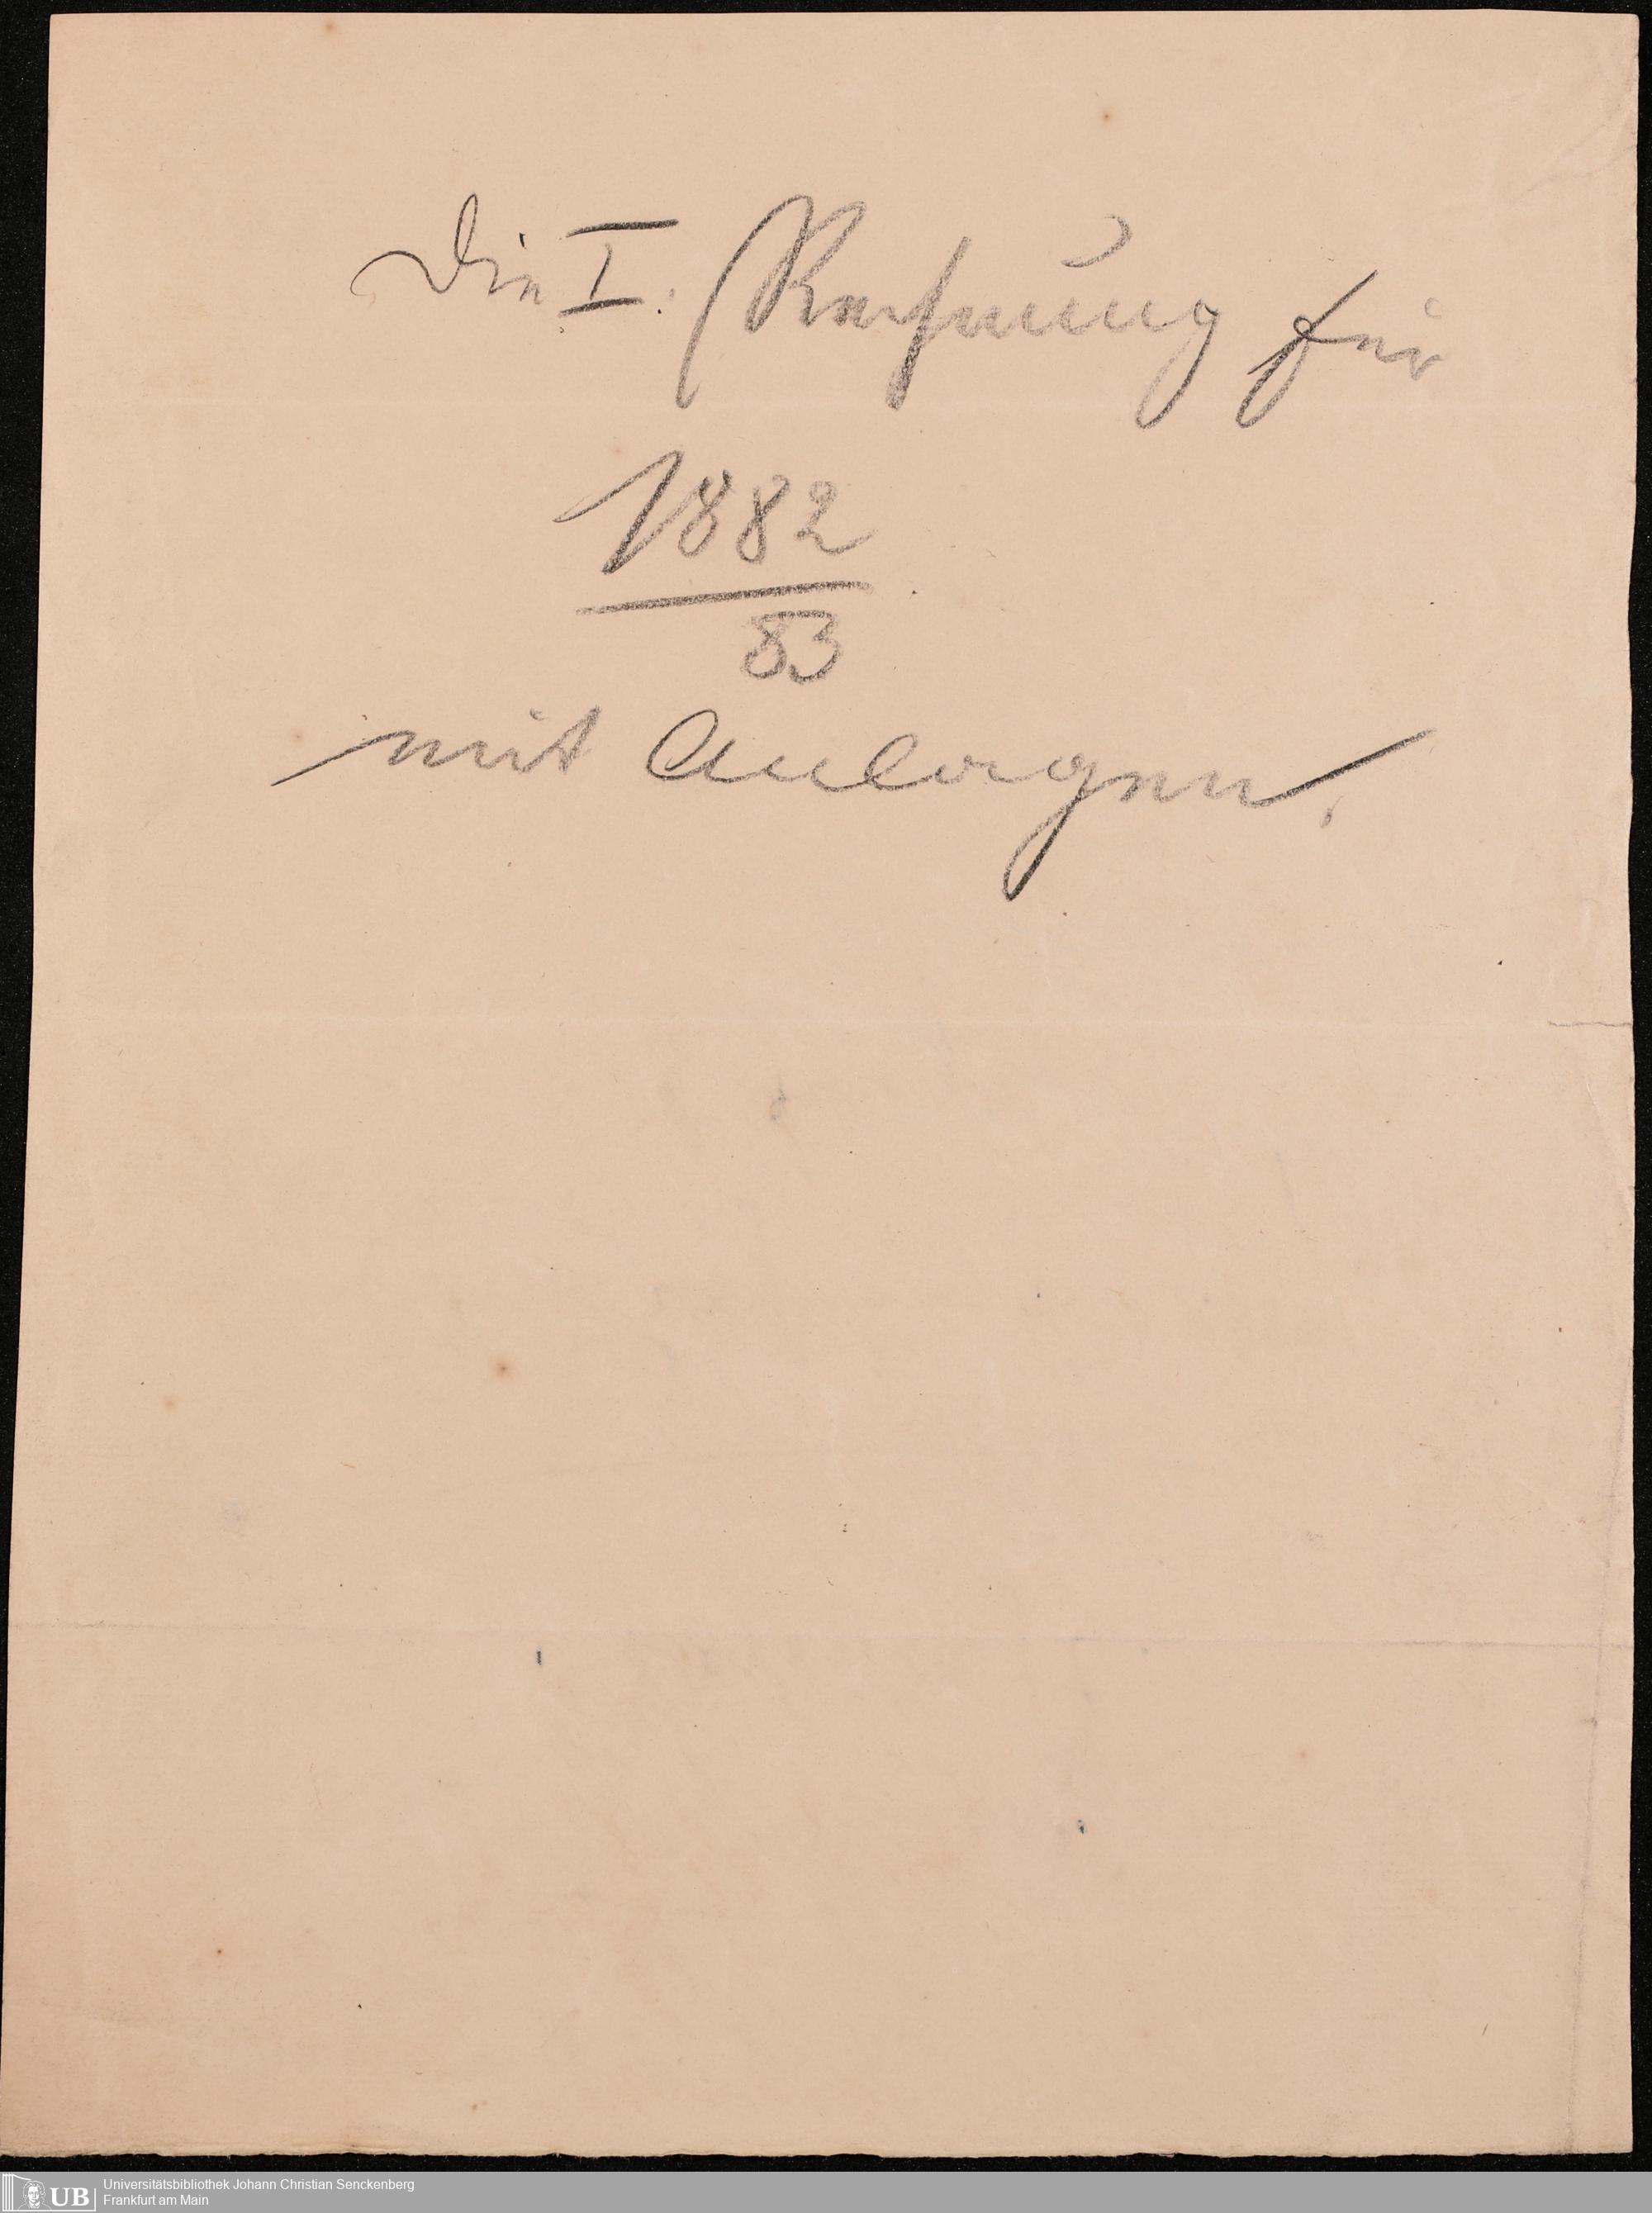 Die I. Rechnung für
1882
83
mit Anlagen.
UB
Universitätsbibliothek Johann Christian Senckenberg
Frankfurt am Main